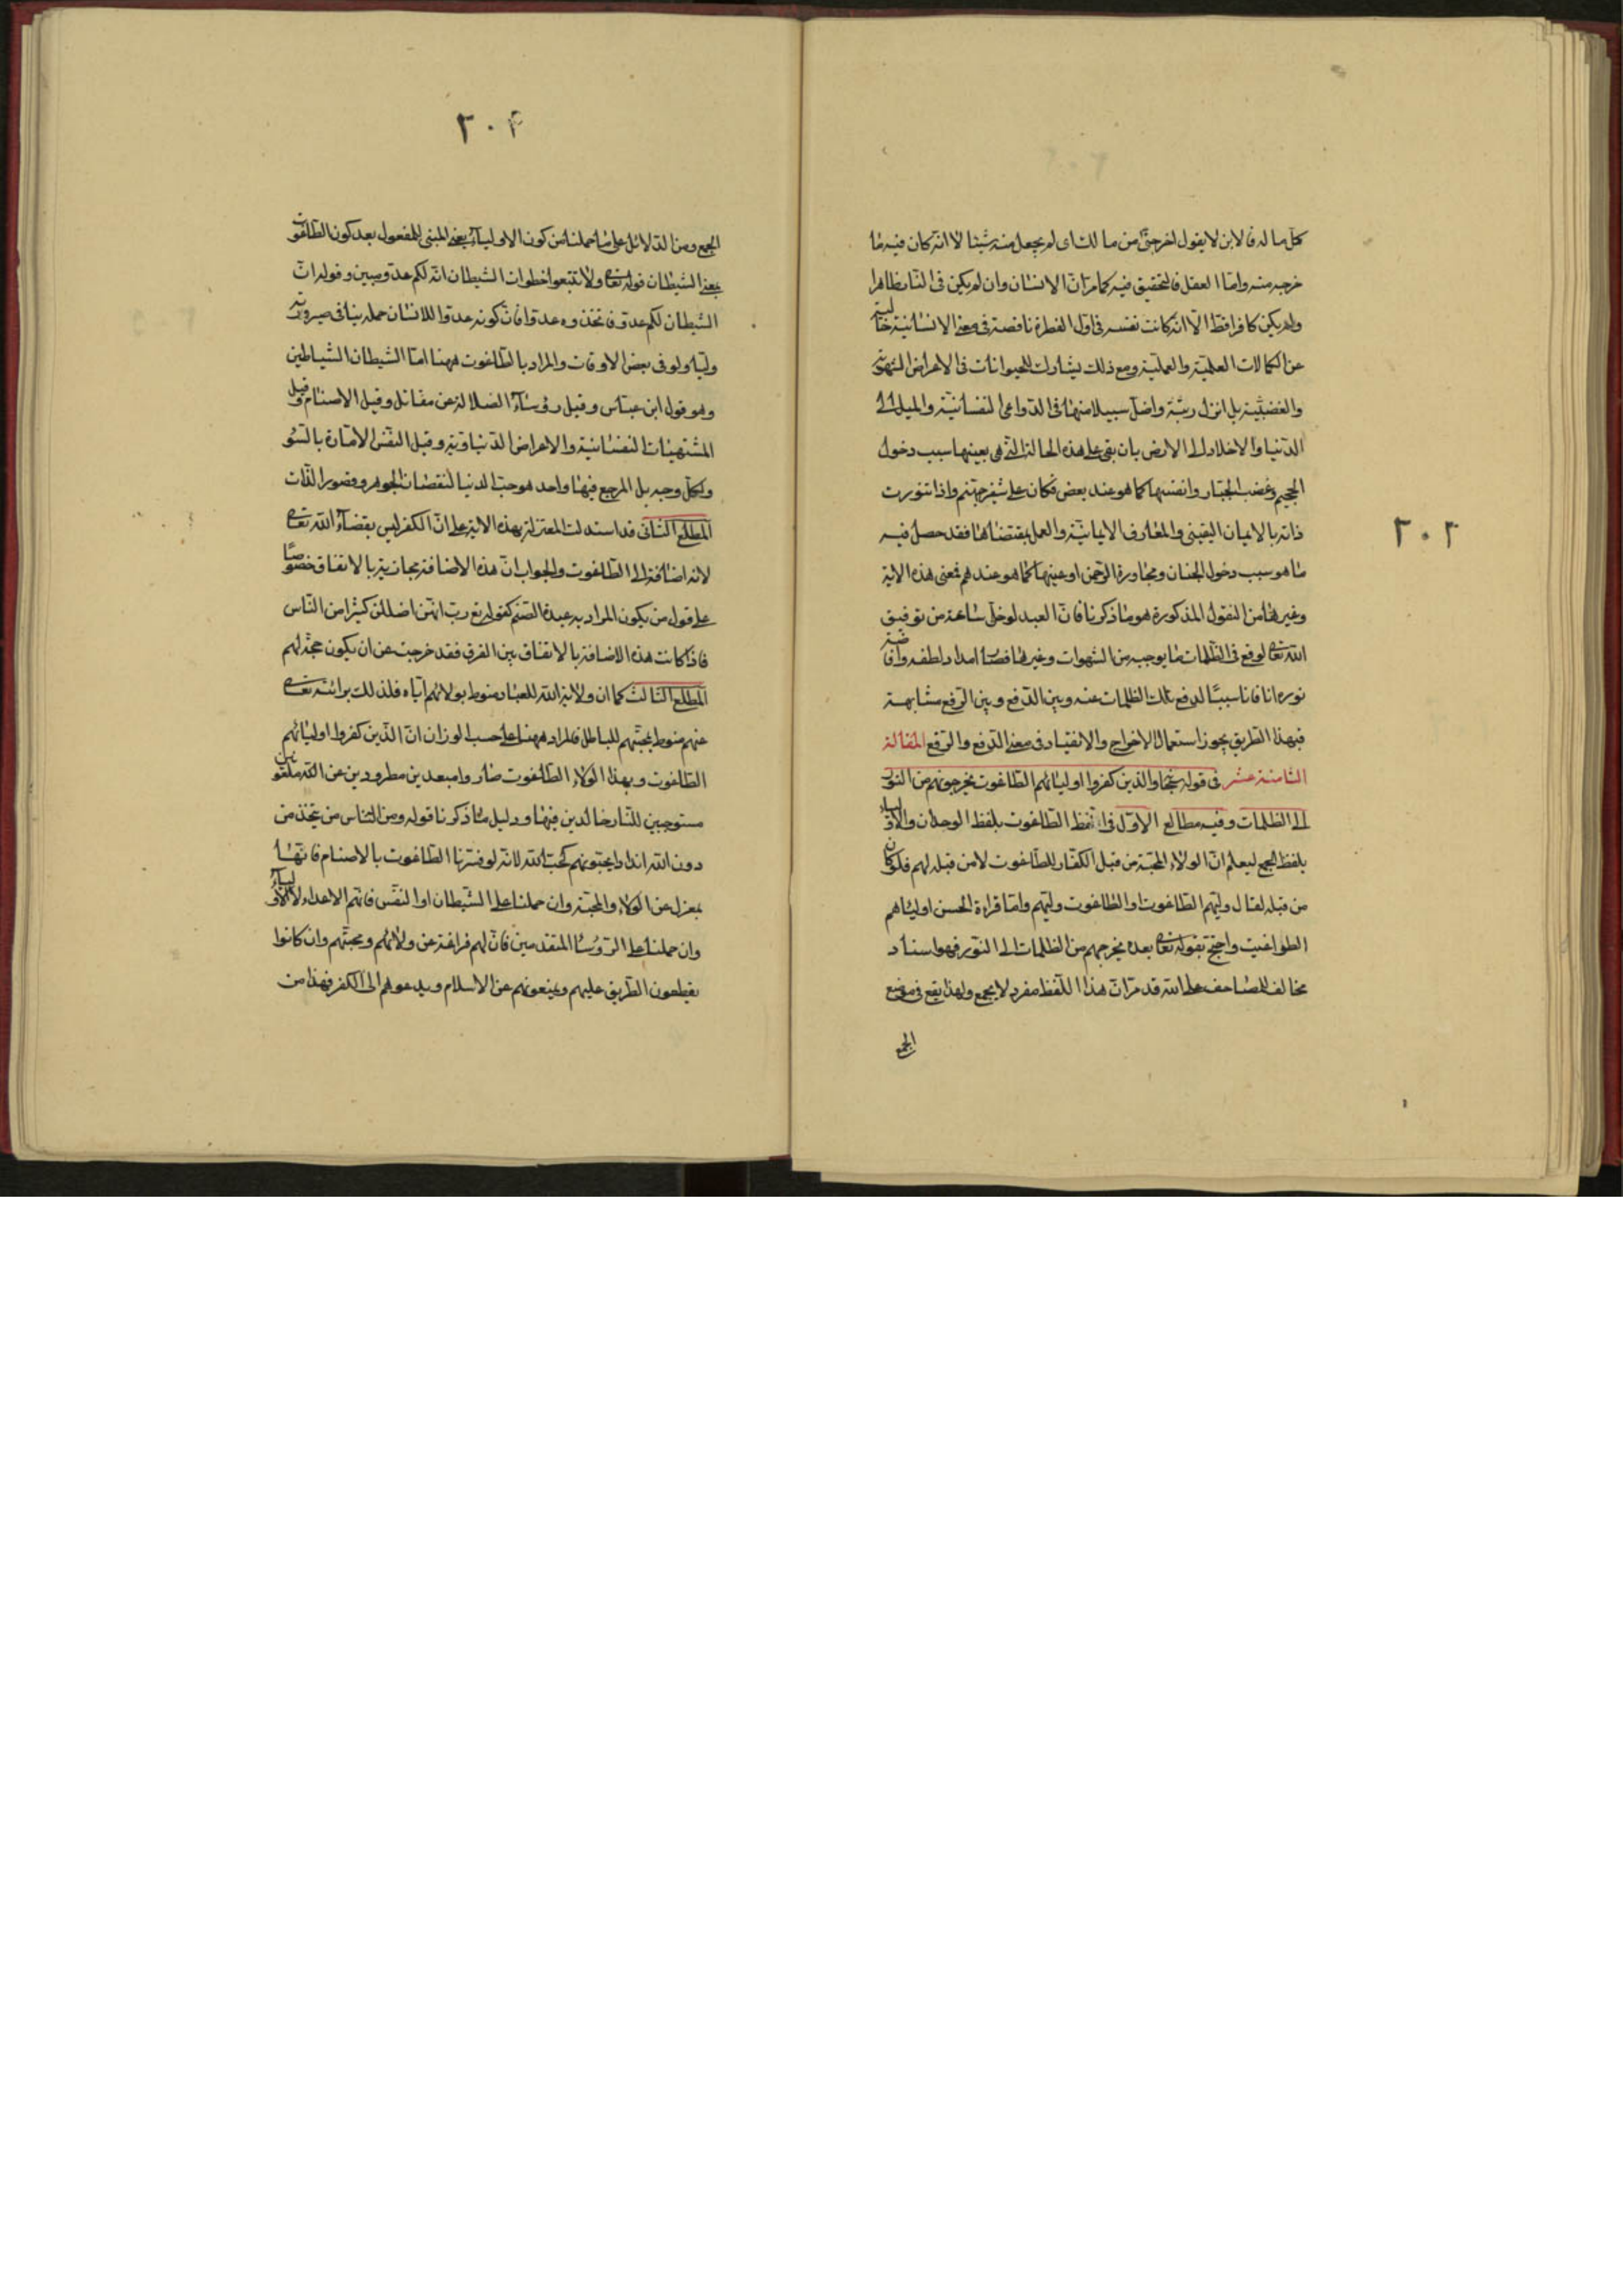 ٢٠٣
كل ماله فالابن لا يقول اخرجتنى من مالك اى لم يجعل منه شيئا لا انه كان فيه فا
خرجه منه واما العقل فالتحقيق فيه كما مر ان الانسان وان لم يكن فى الظاهرا
ولم يكن كافرا قط الا انه كانت نفسه فى اول الفطرة ناقصة فى معنى الانسانية خالية
عن الكمالات العلمية والعملية ومع ذلك يشارك للحيوانات فى الاغراض الشهوية
والغضبية بل انزل رتبة واضل سبيلا منها فى الدواعى النفسانية والميل الى
الدنيا والاخلاد الى الارض بان بقى على هذه الحالة التى هى بعينها سبب دخول
الجحيم وغضب الجبار وانفسها كما هو عند بعض فكان على شفير جهنم واذا تنورت
ذاته بالايمان اليقينى والمعارف الايمانية والعمل بمقتضاها فقد حصل فيه
ما هو سبب دخول الجنان ومجاورة الرحمن او عينها كما هو عندهم فمعنى هذه الاية
وغيرها من النقول المذكورة هو ما ذكرنا فان العبد لو خلى ساعة من توفيق
الله تعالى لوقع فى الظلمات ما يوجبه من الشهوات وغيرها فصار امداد لطفه وافاضة
نوره انا فانا سببا لدفع تلك الظلمات عنه وبين الدفع وبين الرفع مشابهة
فبهذا الطريق يجوز استعمال الاخراج والانقياد فى معنى الدفع والرفع المقالة
الثامنة عشر فى قوله سبحانه والذين كفروا اوليائهم الطاغوت يخرجونهم من النور
الى الظلمات وفيه مطالع الاول فى لفظ الطاغوت بلفظ الوحدان والاولياء
بلفظ الجمع ليعلم ان الولاء والمحبة من قبل الكفار للطاغوت لا من قبله لهم فلو كان
من قبله لقال وليهم الطاغوت او الطاغوت وليهم واما قراءة الحسن اولياهم
الطواغيت واحتج بقوله تعالى بعده يخرجهم من الظلمات الى النور فهو اسناد
مخالف للمصاحف على انه قد مر ان هذا اللفظ مفرد لا يجمع ولهذا يقع فى موضع
الجمع
٢٠۴
الجمع ومن الدلائل على ما حملنا من كون الاولياء بمعنى المبنى للمفعول بعد كون الطاغوت
بمعنى الشيطان قوله تعالى ولا تتبعوا خطوات الشيطان انه لكم عدو مبين وقوله ان
الشيطان لكم عدو فاتخذوه عدوا فان كونه عدوا للانسان جملة ينافى صيرورته
وليا ولو فى بعض الاوقات والمراد بالطاغوت ههنا اما الشيطان الشياطين
وهو قول ابن عباس وقيل رؤساء الضلالة عن مقاتل وقيل الاصنام وقيل
المشتهيات النفسانية والاعراض الدنياوية وقيل النفس الامارة بالسوء
ولكل وجه بل المرجع فيها واحد هو حب الدنيا لنقصان الجوهر وقصور الذات
المطلع الثانى قد استدلت المعتزلة بهذه الاية على ان الكفر ليس بقضاء الله تعالى
لانه اضافه الى الطاغوت والجواب ان هذه الاضافة مجازية بالاتفاق خصوصا
على قول من يكون المراد به عبدة الصنم كقوله تع رب انهن اضللن كثيرا من الناس
فاذا كانت هذه الاضافة بالاتفاق بين الفرق فقد خرجت عن ان يكون حجة لهم
المطلع الثالث كما ان ولاية الله للعباد منوط بولائهم اياه فلذلك برائته تعالى
عنهم منوط بمحبتهم للباطل فالمراد ههنا على حسب الوزان ان الذين كفروا اوليائهم
الطاغوت وبهذا الولاء الطاغوت صاروا مبعدين مطرودين عن الله ملعونين
مستوجبين للنار خالدين فيها ودليل ما ذكرنا قوله ومن الناس من يتخذ من
دون الله اندادا يحبونهم كحب الله لانه لو فسرنا الطاغوت بالاصنام فانها
بمعزل عن الولاء والمحبة وان حملنا على الشيطان او النفس فانهم الاعداء لا الاولياء
وان حملنا على الرؤسا المتقدمين فان لهم فراغة عن ولائهم ومحبتهم وان كانوا
يقطعون الطريق عليهم ويمنعونهم عن الاسلام ويدعوهم الى الكفر فهذا من